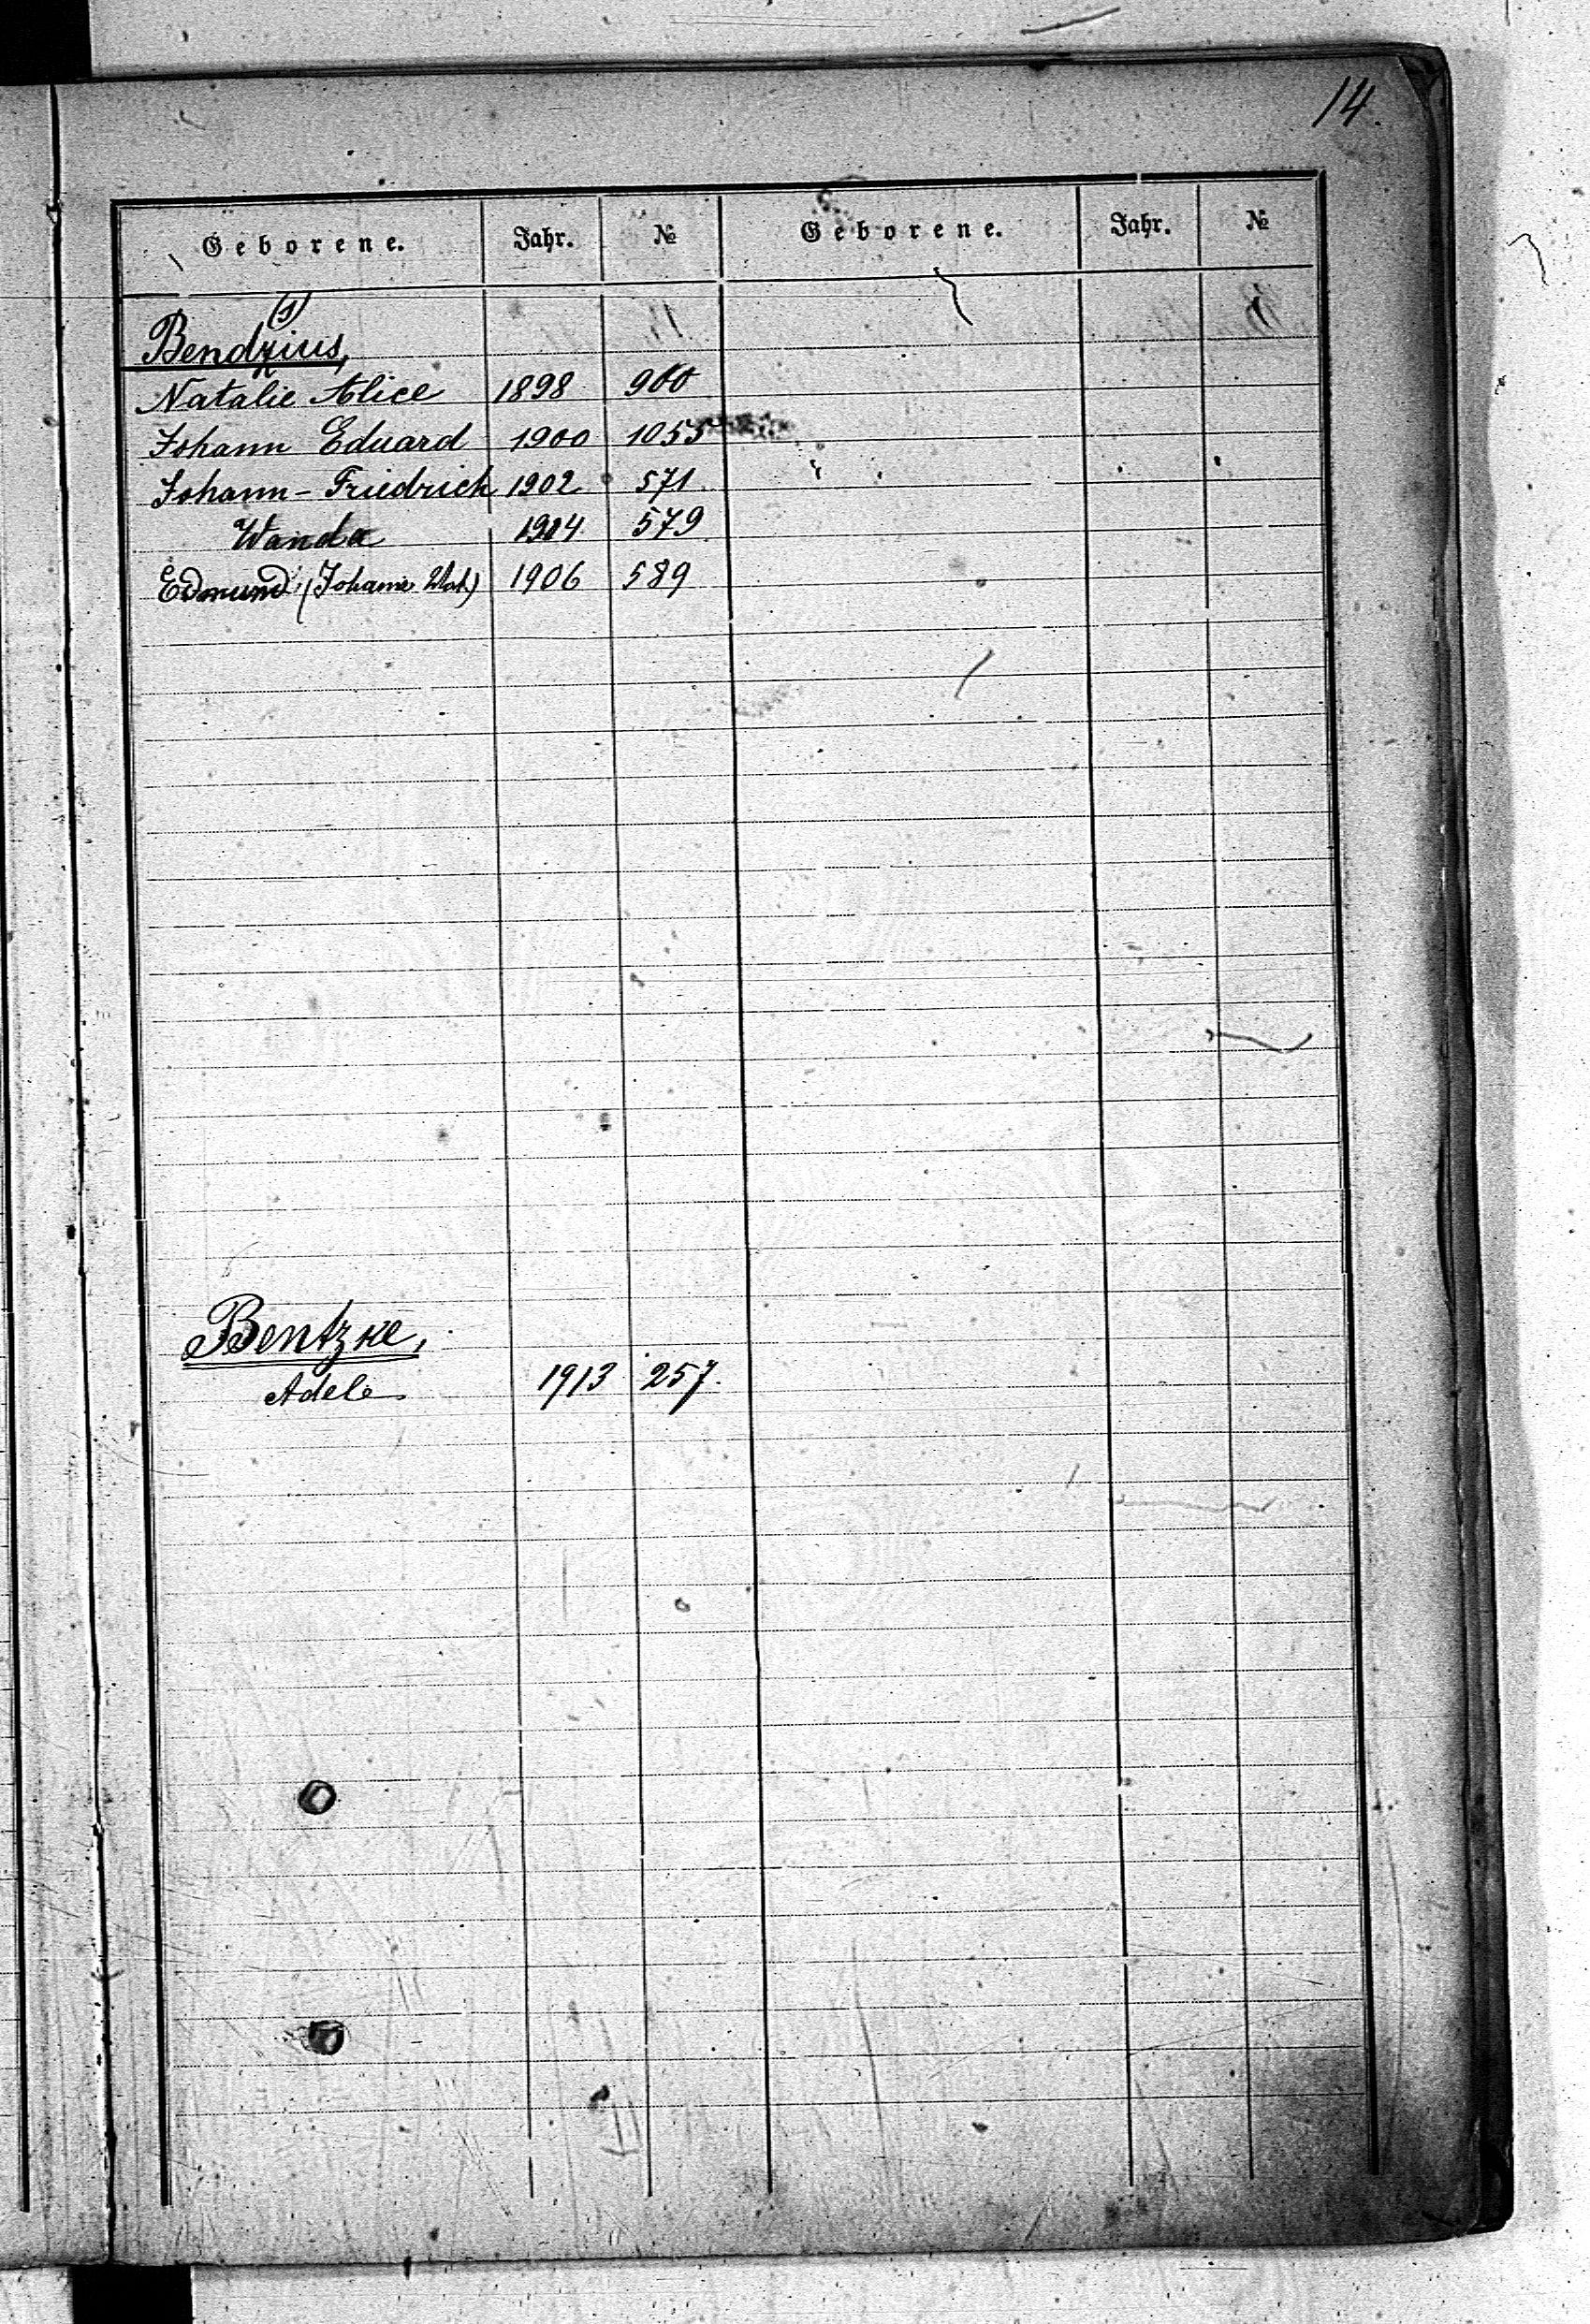 14.
Geborene. Jahr. № Geborene. Jahr. №
(s)
Bendzius,
Natalie Alice 1898 900
Johann Eduard 1900 1055
Johann-Friedrich 1902 571
Wanda 1904 579
Edmund (Johann 1906 589
Bentzke,
Adele 1913 257.